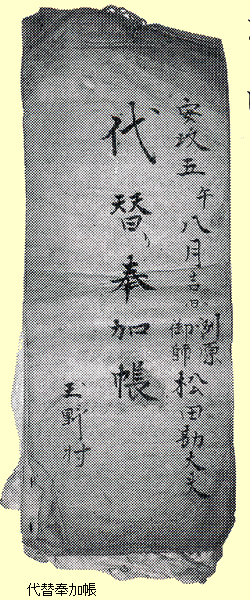 安政五午八月吉日 洲原御師 松田勘大夫
代替奉加帳
玉野村
代替奉加帳